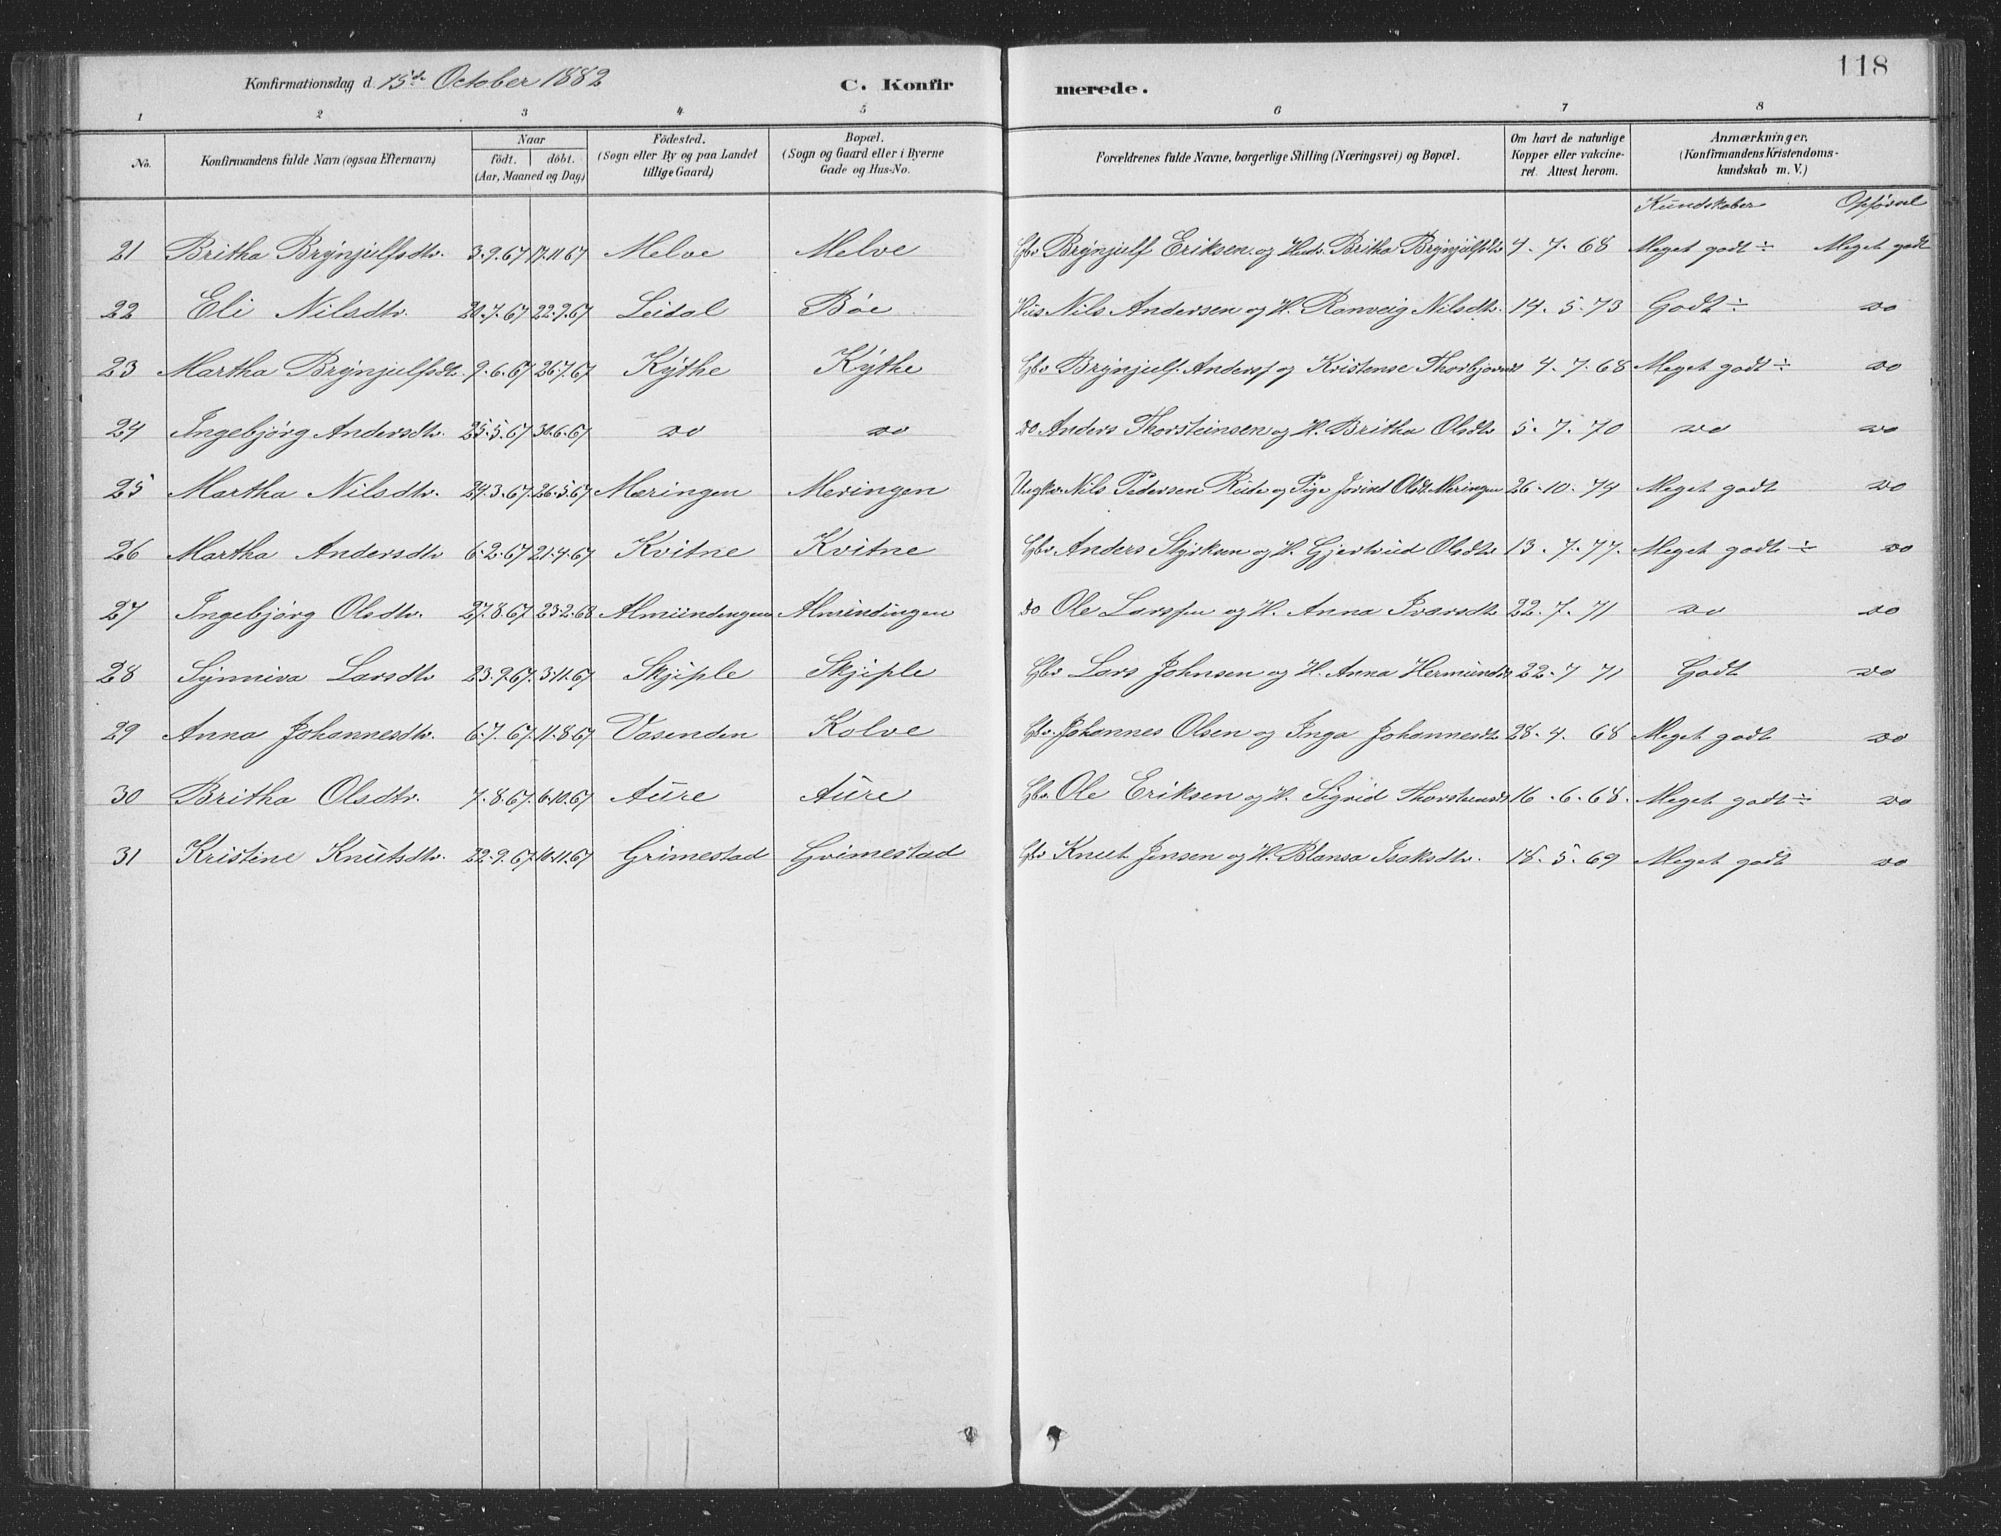 118
Konfirmationsdag d. 15de October 1882 C. Konfirmerede.
1 2 3 4 5 6 7 8
No. Konfirmandens fulde Navn (ogsaa Efternavn) Naar födt. döbt. (Aar, Maaned og Dag) Födested. (Sogn eller By og paa Landet tillige Gaard) Bopæl. (Sogn og Gaard eller i Byerne Gade og Hus-No. Forældrenes fulde Navne, borgerlige Stilling (Næringsvei) og Bopæl. Om havt de naturlige Kopper eller vakcineret. Attest herom. Anmærkninger. (Konfirmandens Kristendomskundskab m. V.)
Kundskaber Opförsel
21 Britha Brynjulfsdtr. 3-9-67 17-11-67 Melve Melve Gbr Brynjulf Eriksen og Hust. Britha Brynjülfsdtr 4-7-68 Meget godt ÷ Meget godt
22 Eli Nilsdtr. 20-7-67 22-9-67 Leidal Böe Hus Nils Andersen og H. Ranveig Nilsdtr. 14-5-73 Godt ÷ do
23 Martha Brynjulfsdtr. 9-6-67 26-7-67 Kythe Kythe Gbr Brynjulf Anders. og Kristense Thorbjörns 4-7-68 Meget godt ÷ do
24 Ingebjörg Andersdtr. 25-5-67 30-6-67 do do do Anders Thorsteinsen og H. Britha Olsdtr 5-7-70 do do
25 Martha Nilsdtr. 24-3-67 26-5-67 Mæringen Meringen Ungkr. Nils Pedersen Rüde og Pige Jorind Olsdt. Meringen 26-10-74 Meget godt do
26 Martha Andersdtr 6-2-67 21-4-67 Kvitne Kvitne Gbr Anders Styrksen og H. Gjertrüd Olsdtr 13-7-77. Meget godt ÷ do
27 Ingebjörg Olsdtr. 27-8-67 23-2-68 Almindingen Almindingen do Ole Larssen og H. Anna Ivarsdtr 22-7-71 do do
28 Synniva Larsdtr 23-9-67 3-11-67 Skjiple Skjiple Gbr Lars Johnsen og H. Anna Hermundsd 22-7 71 Godt do
29 Anna Johannesdtr. 6-7-67 11-8-67 Vasenden Kolve Gbr Johannes Olsen og Inga Johannesdtr 28-4 68 Meget godt do
30 Britha Olsdtr. 7-8-67 6-10-67 Aüre Aüre Gbr Ole Eriksen og H. Sigrid Thorsteinsd 16-6-68. Meget godt ÷ do
31 Kristine Knutsdtr. 22-9-67 10-11-67 Grimestad Grimestad Gbr Knut Jensen og H. Blansa Isaksdtr. 18-5-69 Meget godt do